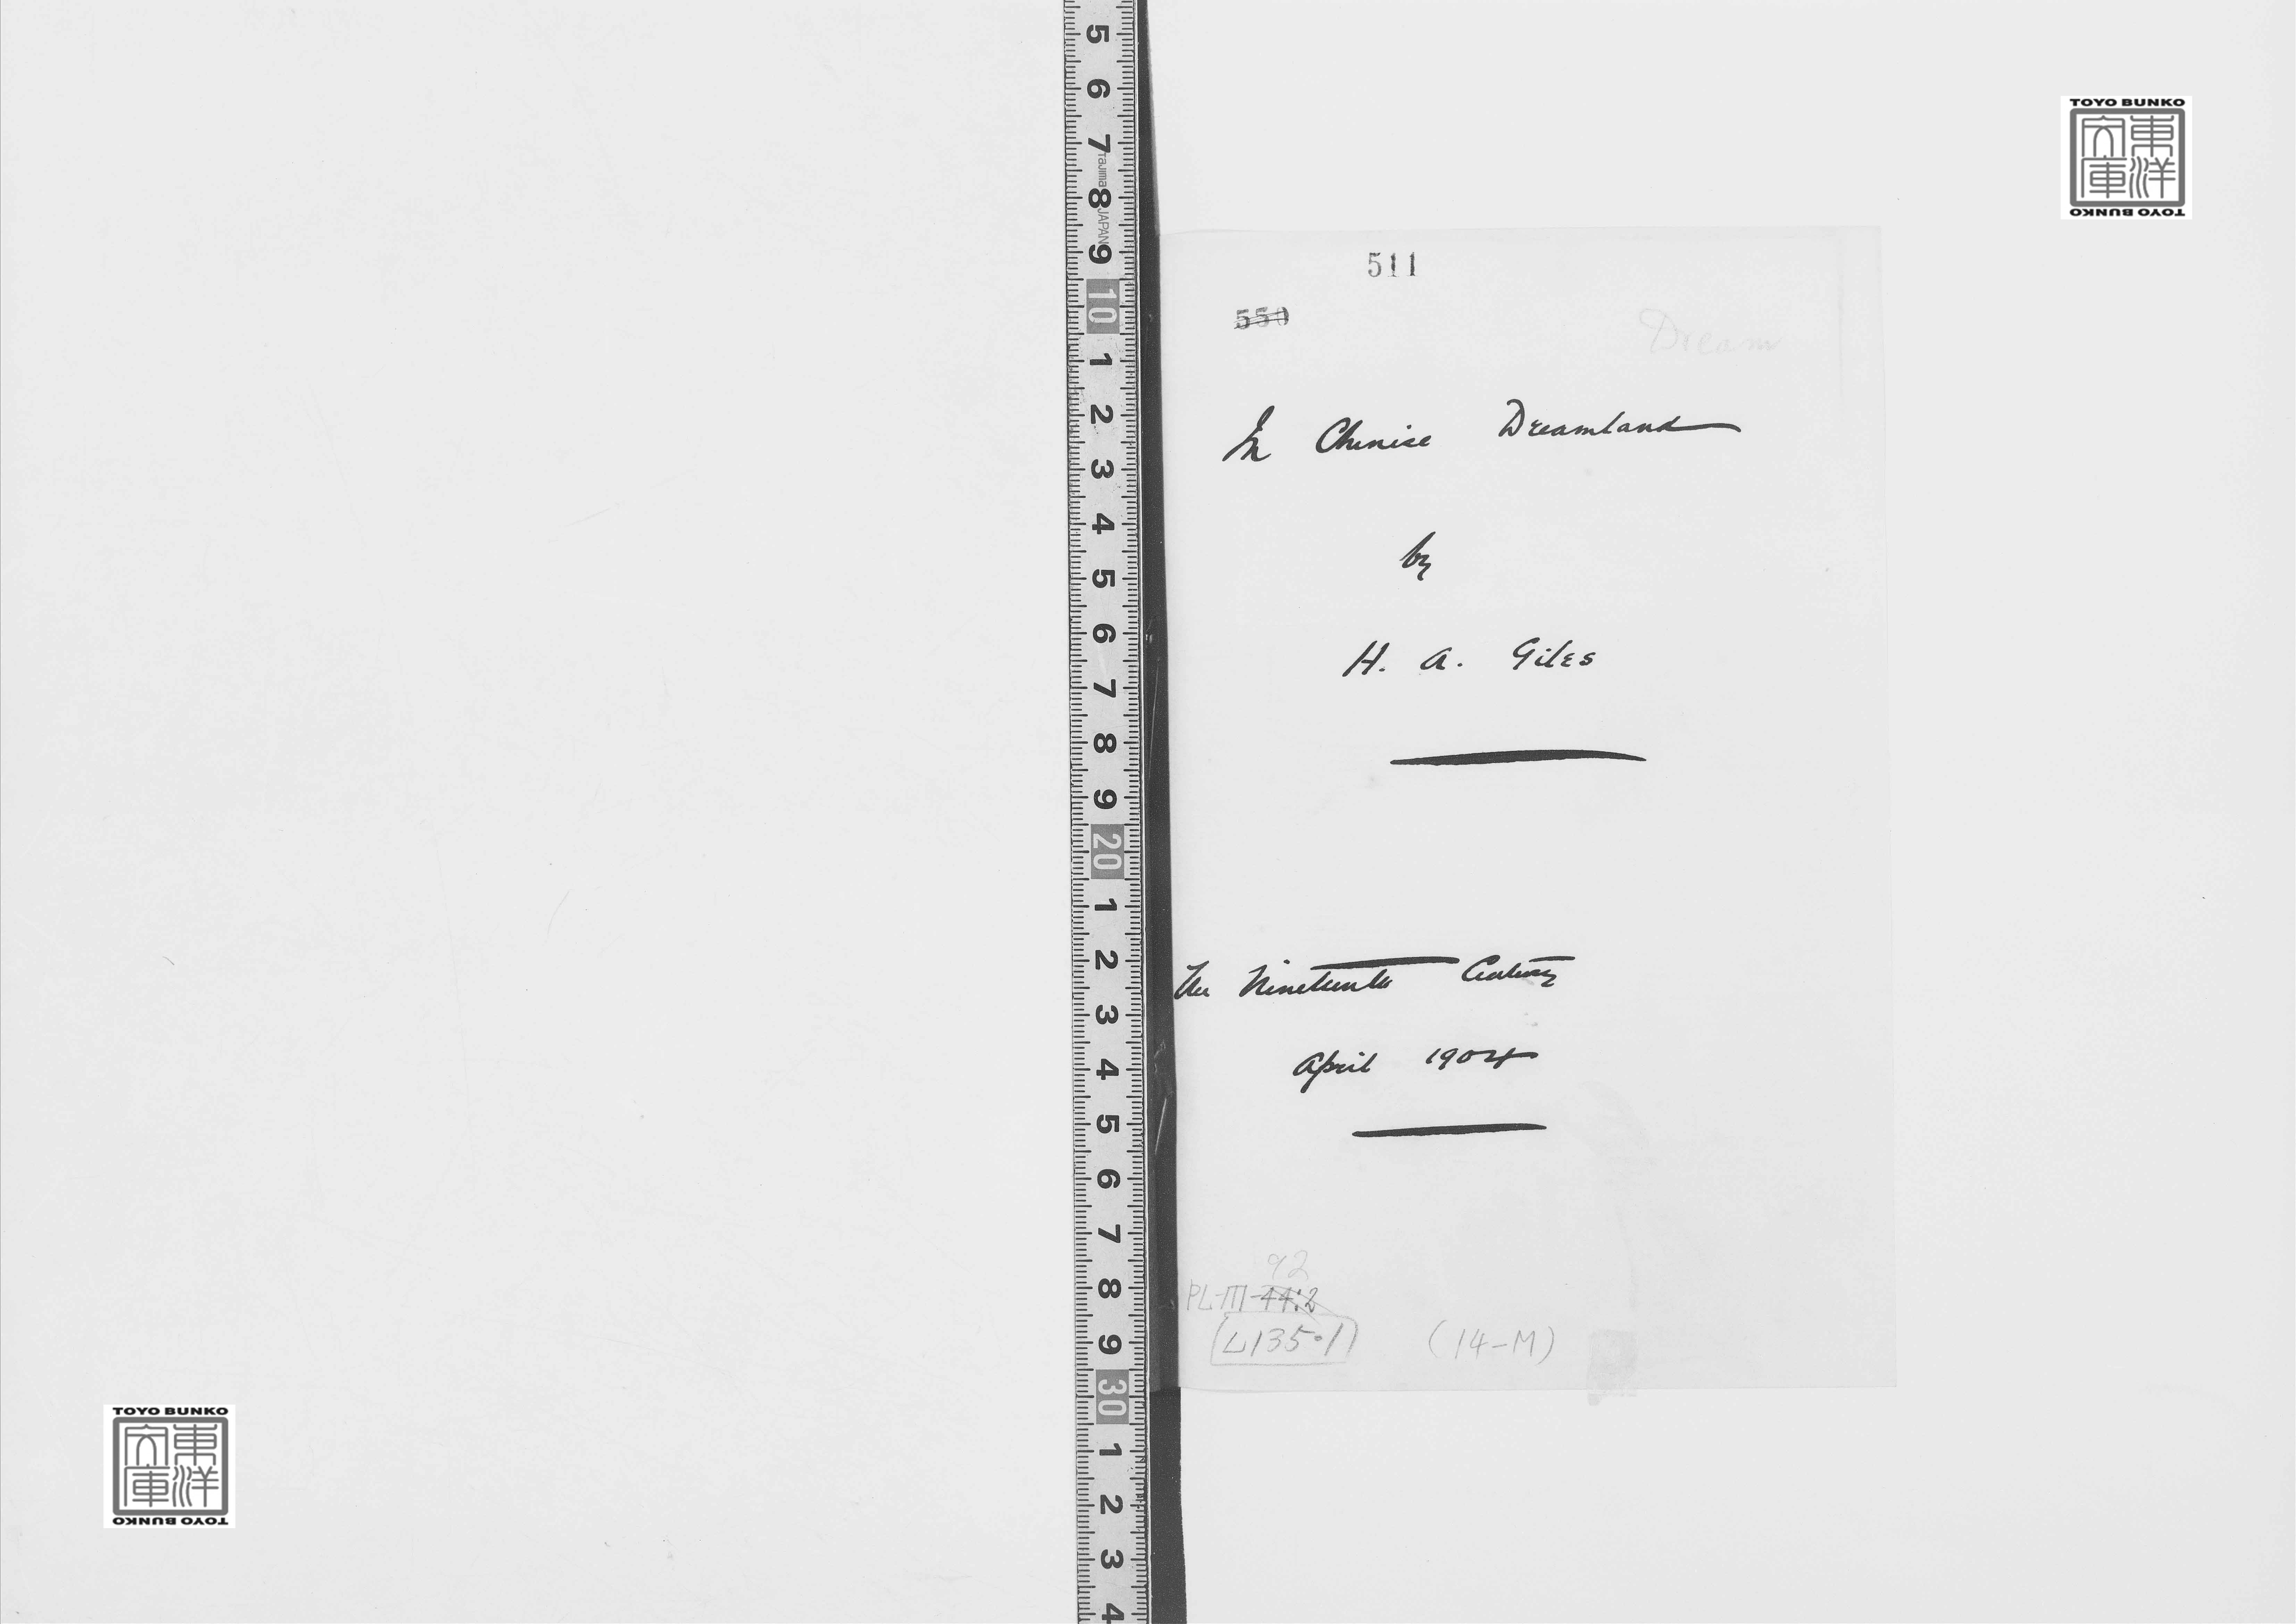 TOYO BUNKO
東洋
文庫
TOYO BUNKO
511
550
Dream
In Chinese Dreamland
by
H. A. Giles
The Nineteenth Century
April 1904
92
PL-III-44:2
L135·1
(14-M)
5
6
7
Tajima
8
JAPAN
9
10
1
2
3
4
5
6
7
8
9
20
1
2
3
4
5
6
7
8
9
30
1
2
3
4
TOYO BUNKO
東洋
文庫
TOYO BUNKO